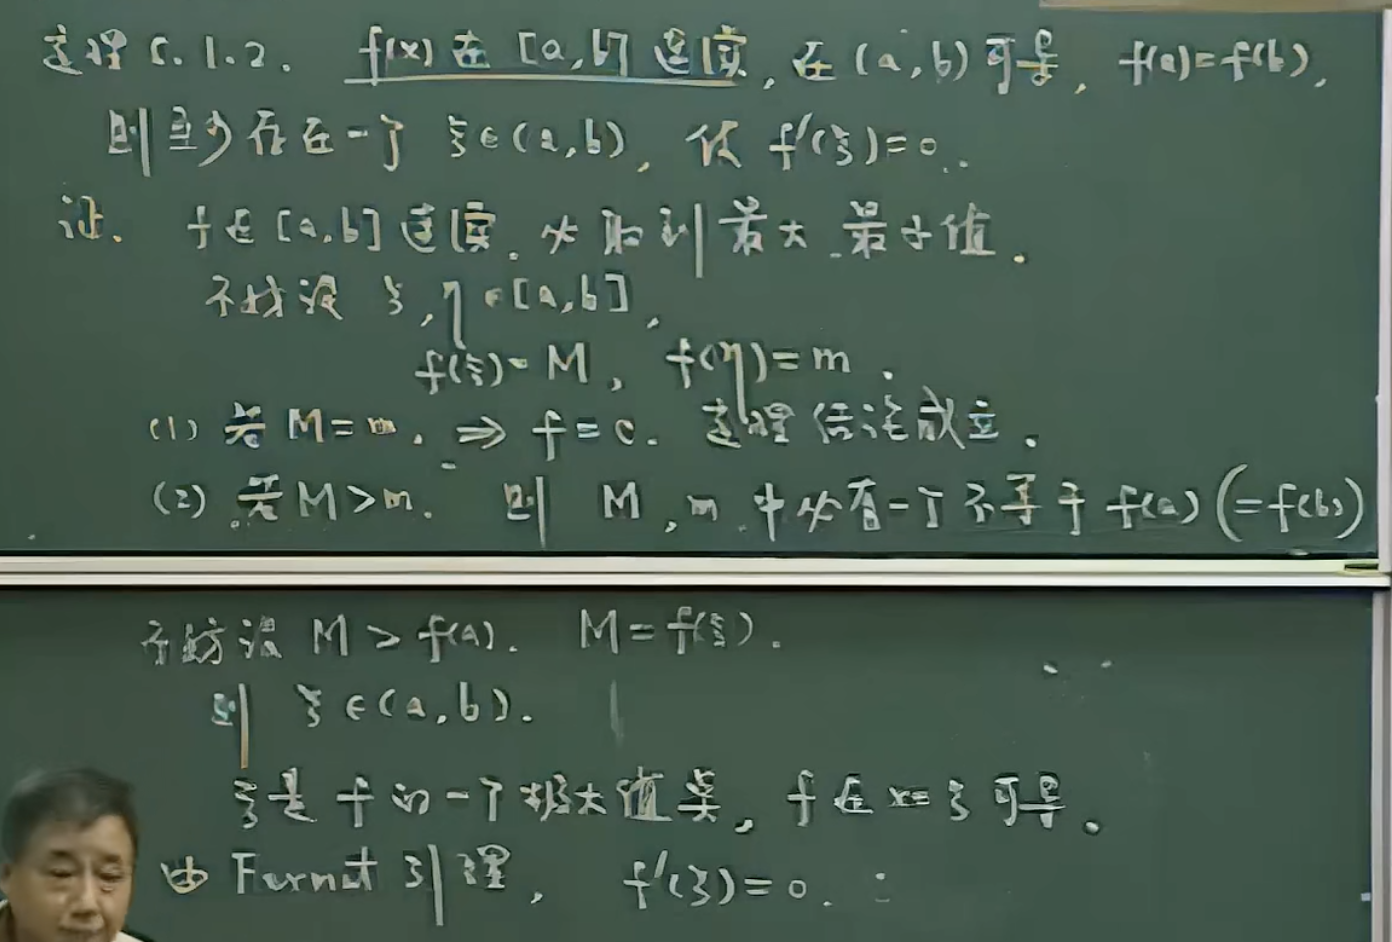 定理5.1.2. f(x)在[a,b]连续,在(a,b)可导, f(a)=f(b),
则至少存在一个 ξ∈(a,b), 使 f′(ξ)=0.
证. f在[a,b]连续.必取到最大.最小值.
不妨设 ξ,η∈[a,b],
f(ξ)=M, f(η)=m.
(1) 若 M=m. ⇒ f=c. 定理结论成立.
(2) 若 M>m. 则 M,m 中必有一个不等于 f(a)(=f(b))
不妨设 M>f(a). M=f(ξ).
则 ξ∈(a,b).
ξ是f的一个极大值点, f在x=ξ可导.
由 Fermat 引理, f′(ξ)=0.